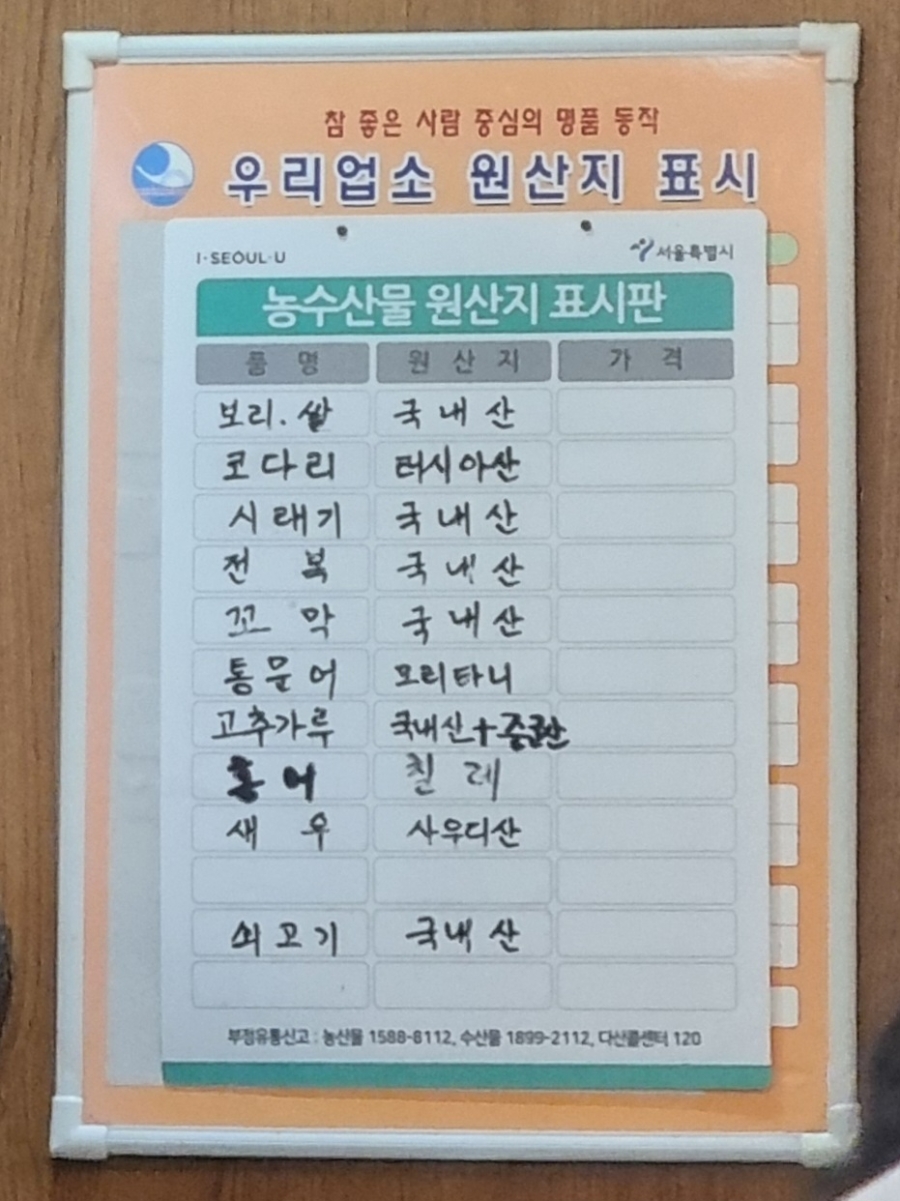 참 좋은 사람 중심의 명품 동작
우리업소 원산지 표시
I·SEOUL·U 서울특별시
농수산물 원산지 표시판
품 명 원 산 지 가 격
보리.쌀 국내산
코다리 러시아산
시래기 국내산
전 복 국내산
꼬 막 국내산
통문어 모리타니
고추가루 국내산+중국산
홍어 칠레
새 우 사우디산
쇠고기 국내산
부정유통신고 : 농산물 1588-8112, 수산물 1899-2112, 다산콜센터 120